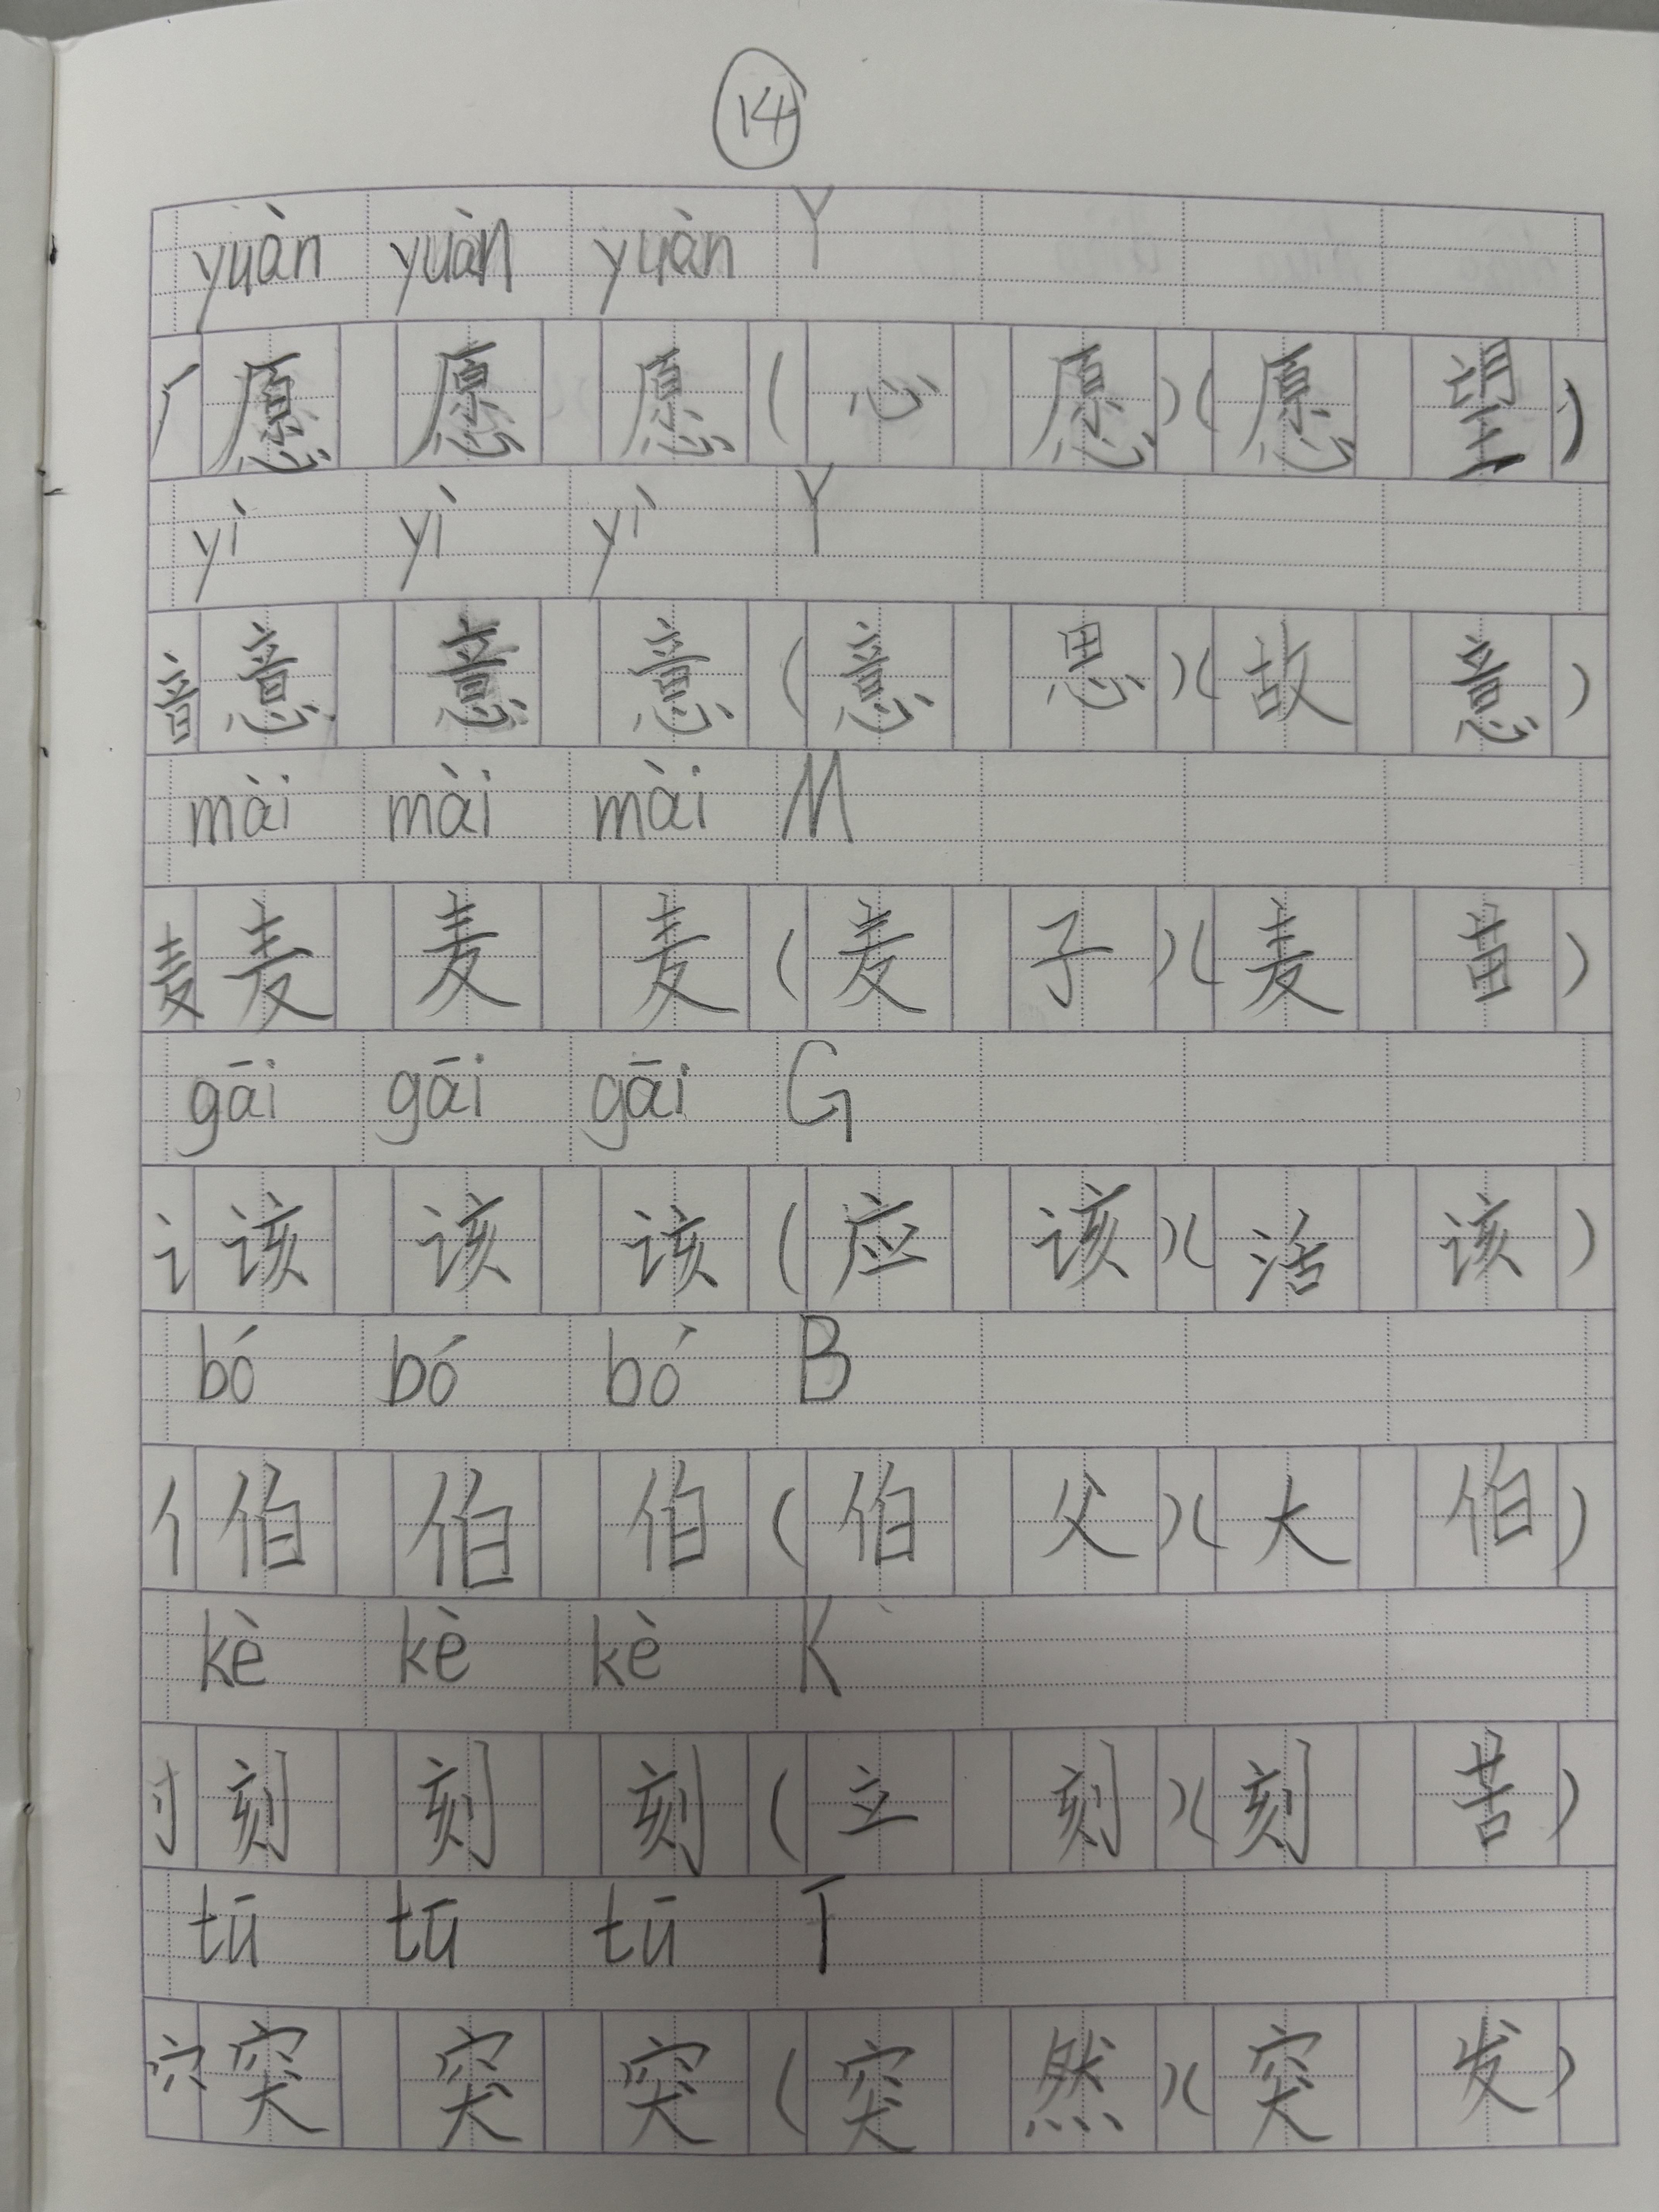 14
yuàn yuàn yuàn Y
厂 愿 愿 愿 ( 心 愿 ) ( 愿 望 )
yì yì yì Y
音 意 意 意 ( 意 思 ) ( 故 意 )
mài mài mài M
麦 麦 麦 麦 ( 麦 子 ) ( 麦 苗 )
gāi gāi gāi G
讠 该 该 该 ( 应 该 ) ( 活 该 )
bó bó bó B
亻 伯 伯 伯 ( 伯 父 ) ( 大 伯 )
kè kè kè K
刂 刻 刻 刻 ( 立 刻 ) ( 刻 苦 )
tū tū tū T
穴 突 突 突 ( 突 然 ) ( 突 发 )